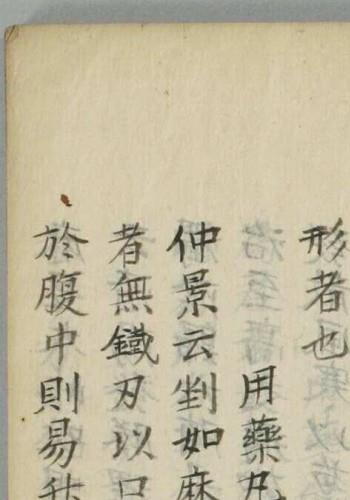 形者也
用藥凡
仲景云剉如麻
者無鐵刃以口
於腹中則易